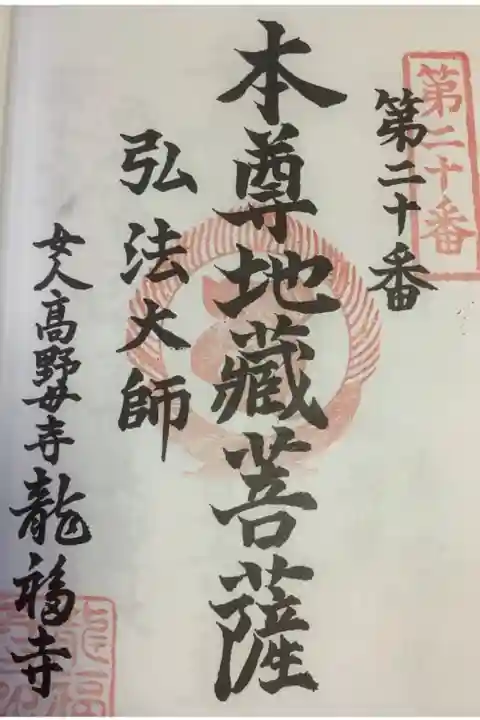 第二十番
第二十番
本尊地藏菩薩
弘法大師
女人高野母寺龍福寺